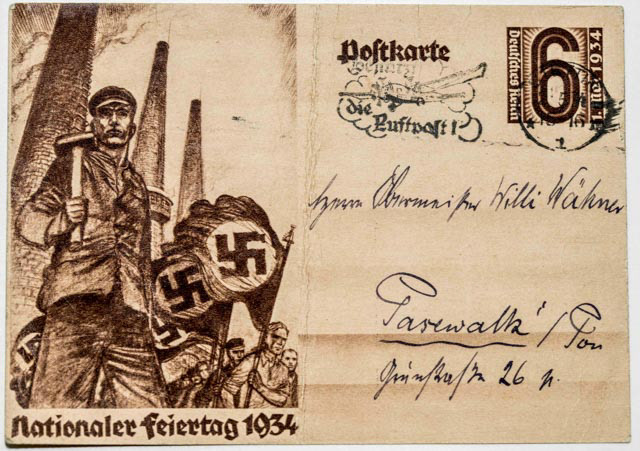 Postkarte
Deutsches Reich
6
1. Mai 1934
die
Luftpost!
Herrn Obermeister Willi Wähner
Pasewalk / Pom
Grünstraße 26
Nationaler Feiertag 1934